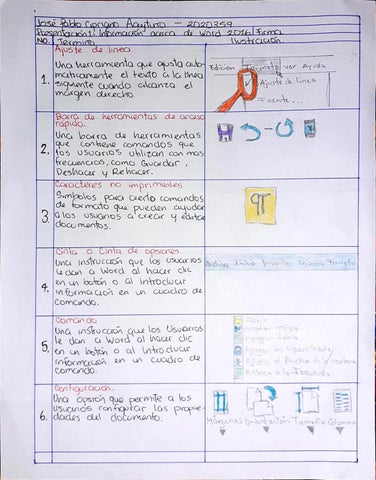 José Pablo Cipriano Aquituno - 2020359
Presentación 1: Información acerca de Word 2016/Firma
No. Término Ilustración
Ajuste de línea
1. Una herramienta que ajusta auto-
máticamente el texto a la línea
siguiente cuando alcanza el
márgen derecho.
Edición Formato ver Ayuda
✓ Ajuste de Línea
Fuente...
Barra de herramientas de acceso
rápido.
2. Una barra de herramientas
que contiene comandos que
los usuarios utilizan con mas
frecuencias, como Guardar,
Deshacer y Rehacer.
Caracteres no imprimibles
3. Simbolos para cierto comandos
de formato que pueden ayudar
a los usuarios a crear y editar
documentos.
¶
Cinta o Cinta de opciones.
4. Una instrucción que los usuarios
le dan a Word al hacer clic
en un botón o al introducir
información en un cuadro de
comando.
Archivo Inicio Insertar Diseño Formato
Comando
5. Una instrucción que los Usuarios
le dan a Word al hacer clic
en un botón o al Introducir
información en un cuadro de
comando.
Alinea a la Izquierda
Configuración.
6. Una opsión que permite a los
usuarios configurar las propie-
dades del documento.
Márgenes Orientación Tamaño Columnas